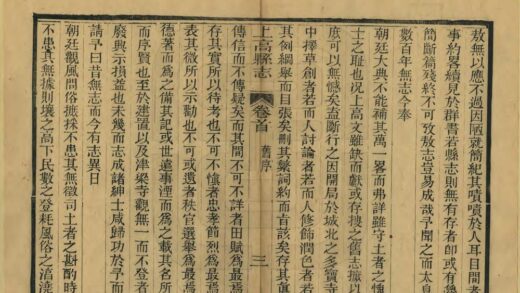 敖無以應不過因陋就簡紀其嘖嘖於人耳目間者
事約畧續見於群書若縣志則無有存者卽或有
簡斷篇殘終不可致敖志豈易成哉予聞之而太息
數百年無志今奉
朝廷大典不能補其萬一畧而弗詳雖守土者之
士之耻也况上高文雖缺而獻或存搜之舊志據以
庶可以無憾矣益斷行之因開局於城北之多寶寺
中擇草創者若而人討論者若而人修飾潤色者若
其例綱舉而目張矣刪其繁詞約而旨該矣存其眞
上高縣志
卷首
舊序
三
傳信而不傳疑矣而其間不可不詳者田賦爲最焉
存其實所以待考也不可不愼者忠孝節烈爲最焉
表其微所以示勸也不可或遺者秩官選舉爲最焉
德著而爲之備其記或世遠事湮而爲之載其名所
而序賢也至於建置以及津梁寺觀無一而不登者
廢興示損益也未幾而志成諸紳士咸歸功於予而
請予曰昔無志而今有志異日
朝廷觀風問俗搜採不患其無徵司土者之斟酌時
不患其無據則壤之高下民數之登耗風俗之澆